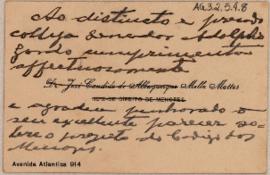 AG.3.2.5.9.8
Ao distincto e prezado
collega senador Adolpho
Gordo cumprimenta
affectuosamente
Dr. José Candido de Albuquerque Mello Mattos
JUIZ DE DIREITO DE MENORES
e agradece penhorado o
seu excellente parecer so-
bre o projecto do Codigo dos
Menores.
Avenida Atlantica 914